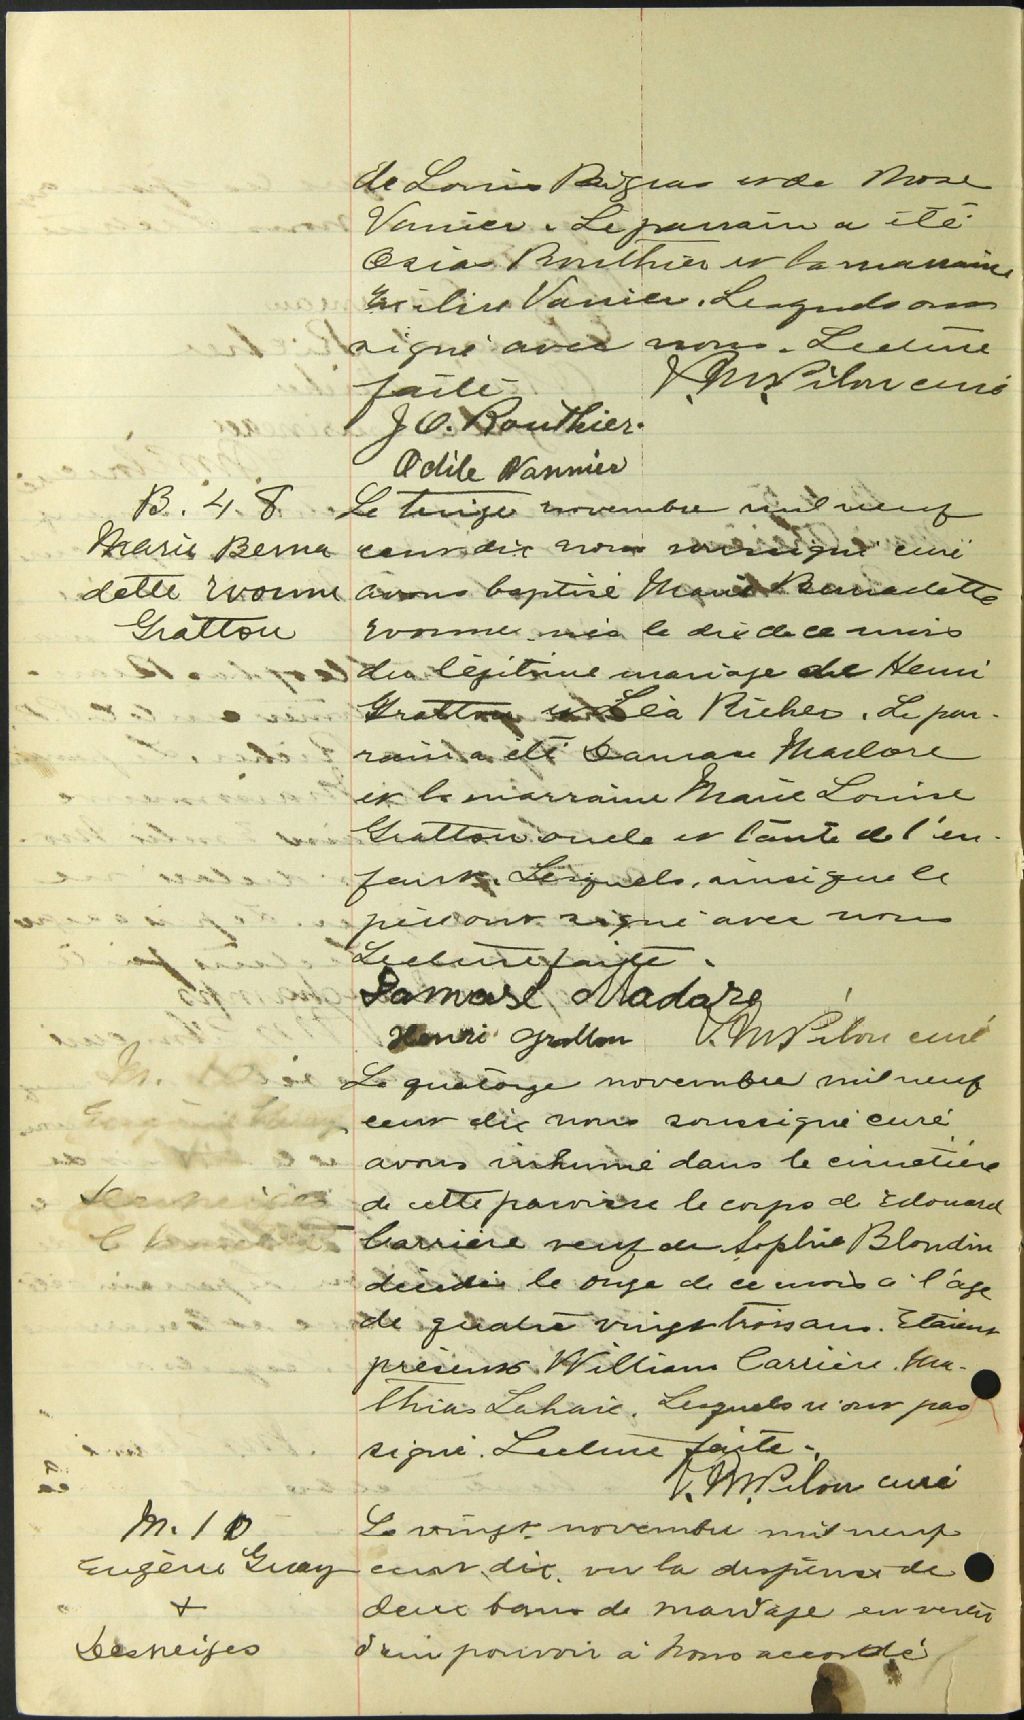 de Louis Bigras et de Rose
Vanier. Le parrain a été
Ozias Routhier et la marraine
Vanier. Lesquels ont
signé avec nous. Lecture
faite. V. M. Pilon curé
J O. Routhier.
Odile Vannier
B. 48
Marie Berna
dette Yvonne
Gratton
Le treize novembre mil neuf
cent dix nous soussigné curé
avons baptisé Marie Bernadette
Yvonne née le dix de ce mois
du légitime mariage de Henri
Gratton et Léa Richer. Le par-
rain a été Damase Madore
et la marraine Marie Louise
Gratton oncle et tante de l'en-
fant. Lesquels, ainsi que le
père ont signé avec nous
Lecture faite.
Damase Madore
Henri Gratton V. M. Pilon curé
Le quatorze novembre mil neuf
cent dix nous soussigné curé
avons inhumé dans le cimetière
de cette paroisse le corps de Edouard
Carrière veuf de Sophie Blondin
décédé le onze de ce mois à l'âge
de quatre vingt trois ans. Etaient
présents William Carrière. Ma-
thias Lahaie. Lesquels n'ont pas
signé. Lecture faite.
V. M. Pilon curé
M. 10
Eugène Guay
+
Desneiges
Le vingt novembre mil neuf
cent dix, vu la dispense de
deux bans de mariage en vertu
d'un pouvoir à nous accordé